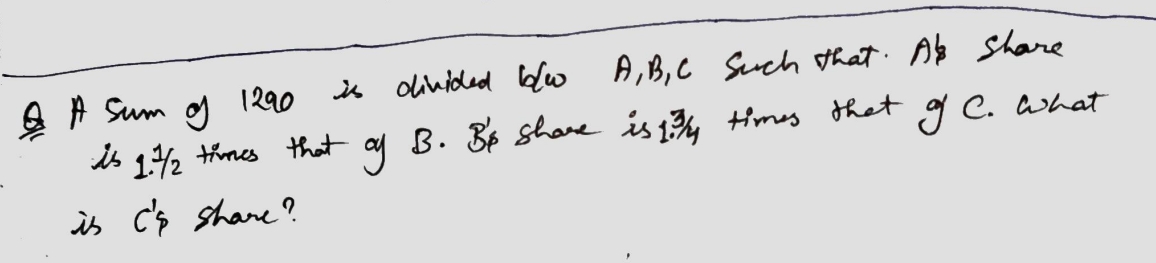 Q A Sum of 1290 is divided b/w A,B,C Such that. A's Share
is 1.1/2 times that of B. B's Share is 1.3/4 times that of C. What
is C's Share?